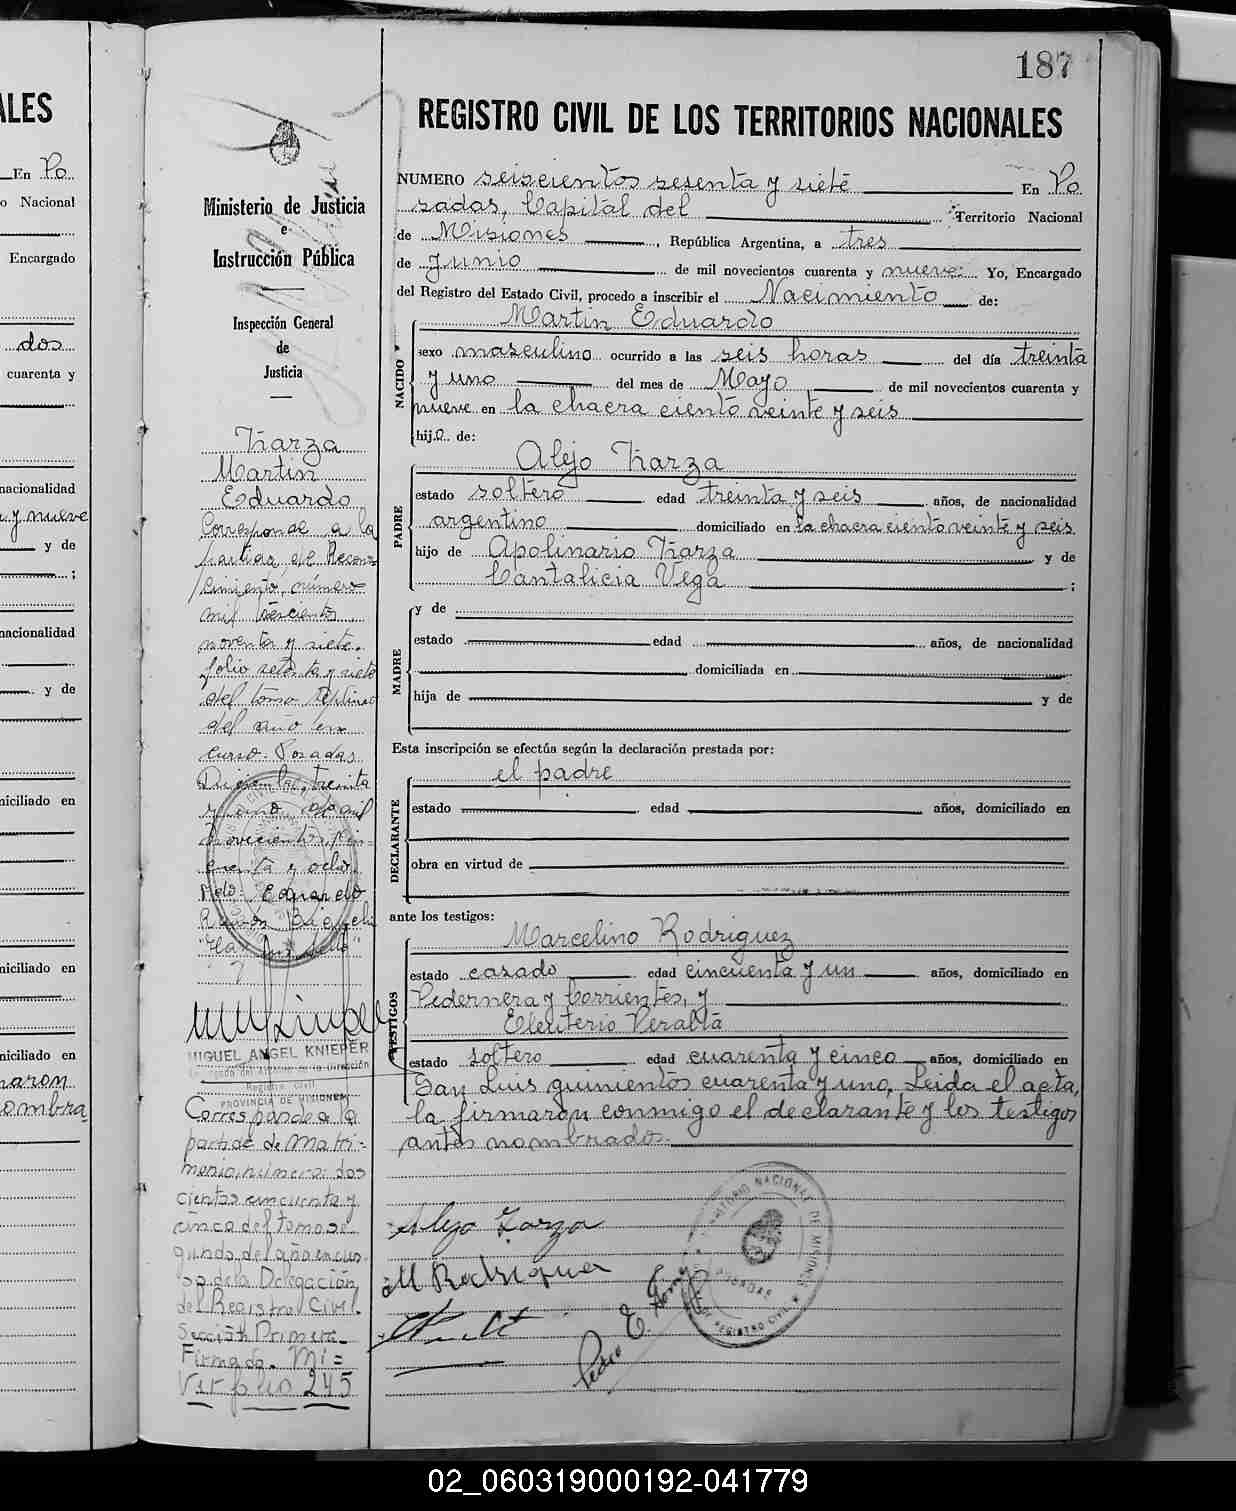 187
REGISTRO CIVIL DE LOS TERRITORIOS NACIONALES
NUMERO seiscientos sesenta y siete En Po
sadas, Capital del Territorio Nacional
de Misiones, República Argentina, a tres
de Junio de mil novecientos cuarenta y nueve. Yo, Encargado
del Registro del Estado Civil, procedo a inscribir el Nacimiento de:
Martin Eduardo
NACIDO
sexo masculino ocurrido a las seis horas del día treinta
y uno del mes de Mayo, de mil novecientos cuarenta y
nueve en la chacra ciento veinte y seis
hijo de:
Alejo Zarza
PADRE
estado soltero edad treinta y seis años, de nacionalidad
argentino domiciliado en la chacra ciento veinte y seis
hijo de Apolinario Zarza y de
Cantalicia Vega ;
MADRE
y de
estado edad años, de nacionalidad
domiciliada en
hija de y de
Esta inscripción se efectúa según la declaración prestada por:
el padre
DECLARANTE
estado edad años, domiciliado en
obra en virtud de
ante los testigos:
Marcelino Rodriguez
TESTIGOS
estado casado edad cincuenta y un años, domiciliado en
Pedernera y Corrientes, y
Eleuterio Peralta
estado soltero edad cuarenta y cinco años, domiciliado en
San Luis quinientos cuarenta y uno. Leida el acta,
la firmaron conmigo el declarante y los testigos
antes nombrados.
Alejo Zarza
M Rodriguez
Pedro E.
TERRITORIO NACIONAL DE MISIONES
POSADAS
REGISTRO CIVIL
Ministerio de Justicia
e
Instrucción Pública
Inspección General
de
Justicia
Zarza
Martin
Eduardo
Corresponde a la
partida de Recono
cimiento, número
mil
noventa y siete,
folio setenta y siete
del tomo séptimo
del año en
curso. Posadas
Diciembre, treinta
y uno de mil
novecientos cin-
cuenta y ocho.
Fdo: Eduardo
Ramón
"Hay un sello"
MIGUEL ANGEL KNIEPER
Registro Civil
PROVINCIA DE MISIONES
Corresponde a la
partida de Matri=
monio, número: dos
cientos cincuenta y
cinco del tomo se
gundo, del año en cur-
so de la Delegación
del Registro Civil.
Sección Primera
Firmado. Mi=
Ver folio 245
ALES
En Po
o Nacional
Encargado
dos
cuarenta y
nacionalidad
y nueve
y de
;
nacionalidad
y de
niciliado en
niciliado en
niciliado en
maron
ombra
02_060319000192-041779